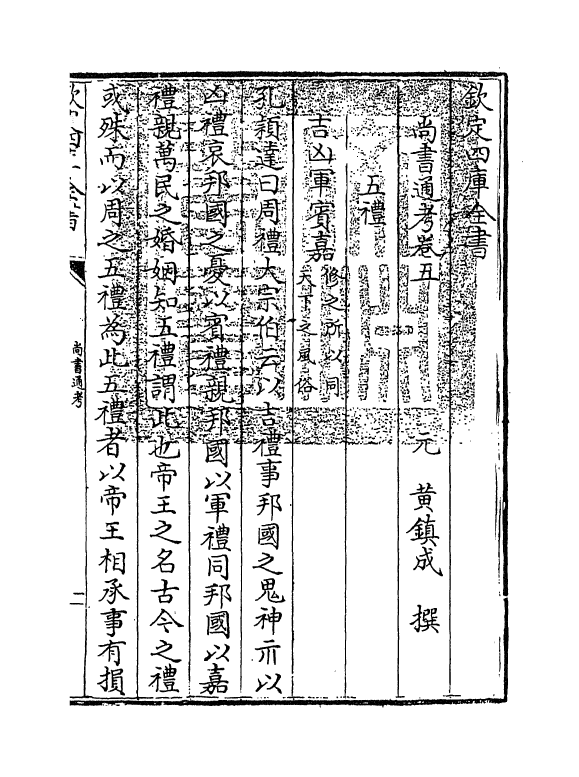 欽定四庫全書
尚書通考卷五
元 黄鎮成 撰
五禮
吉凶軍賓嘉修之所以同天下之風俗
孔穎達曰周禮大宗伯云以吉禮事邦國之鬼神示以
凶禮哀邦國之憂以賓禮親邦國以軍禮同邦國以嘉
禮親萬民之婚姻知五禮謂此也帝王之名古今之禮
或殊而以周之五禮為此五禮者以帝王相承事有損
尚書通考